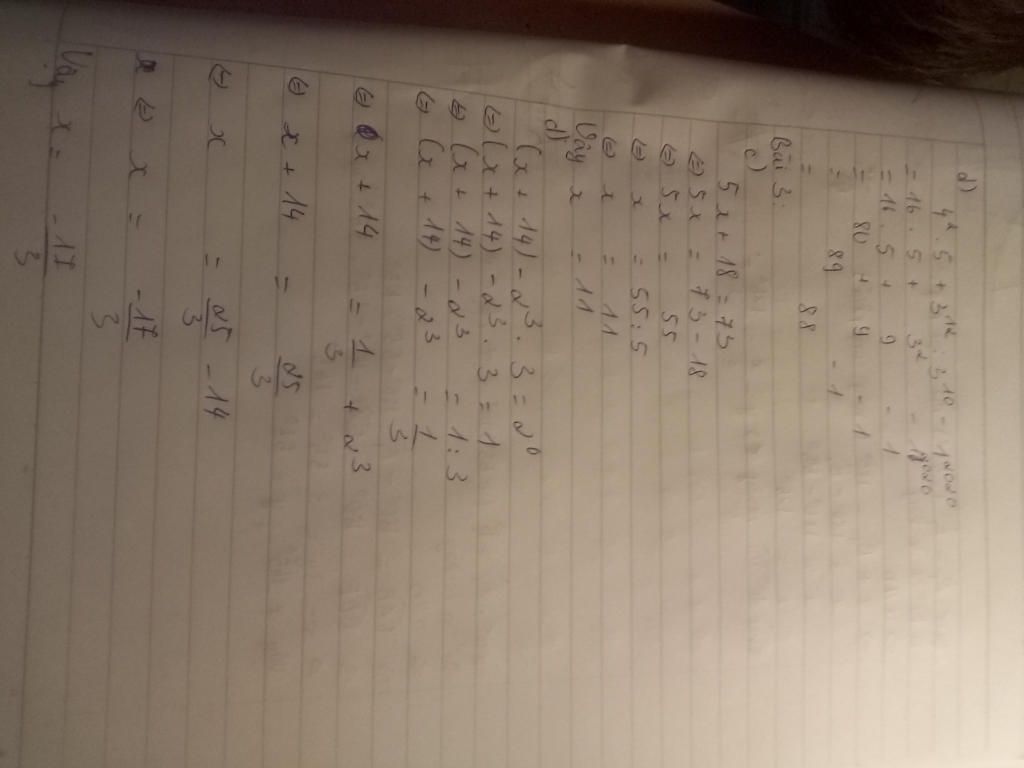 d)
4². 5 + 3¹² : 3¹⁰ - 1²⁰²⁰
= 16 . 5 + 3² - 1²⁰²⁰
= 16 . 5 + 9 - 1
= 80 + 9 - 1
= 89 - 1
= 88
Bài 3.
c)
5x + 18 = 73
⇔ 5x = 73 - 18
⇔ 5x = 55
⇔ x = 55:5
⇔ x = 11
Vậy x = 11
d)
(x + 14) - 2³ . 3 = 2⁰
⇔ (x + 14) - 2³ . 3 = 1
⇔ (x + 14) - 2³ = 1:3
⇔ (x + 14) - 2³ = 1/3
⇔ x + 14 = 1/3 + 2³
⇔ x + 14 = 25/3
⇔ x = 25/3 - 14
⇔ x = -17/3
Vậy x = -17/3